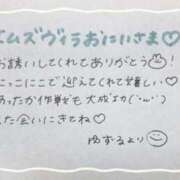 ムズヴィラおにいさま♡
お誘いしてくれてありがとう
にっこにこで迎えてくれて嬉しい♡
あったか作戦も大成功(˙ᵕ˙)
また会いにきてね♡
ゆずるより